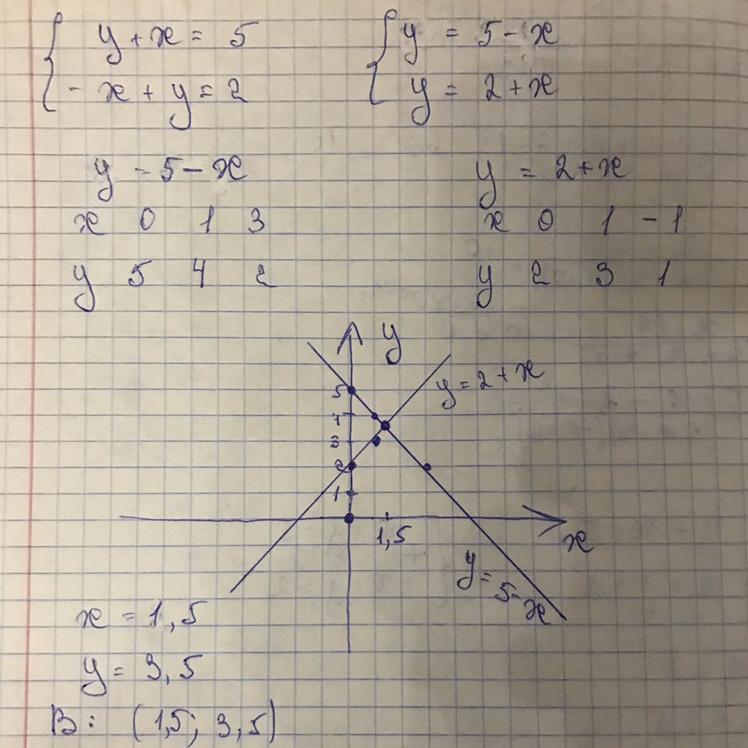 y + x = 5
- x + y = 2
y = 5 - x
y = 2 + x
y = 5 - x
x 0 1 3
y 5 4 2
y = 2 + x
x 0 1 -1
y 2 3 1
y
y = 2 + x
5
4
3
2
1
1,5
x
y = 5 - x
x = 1,5
y = 3,5
В: (1,5; 3,5)